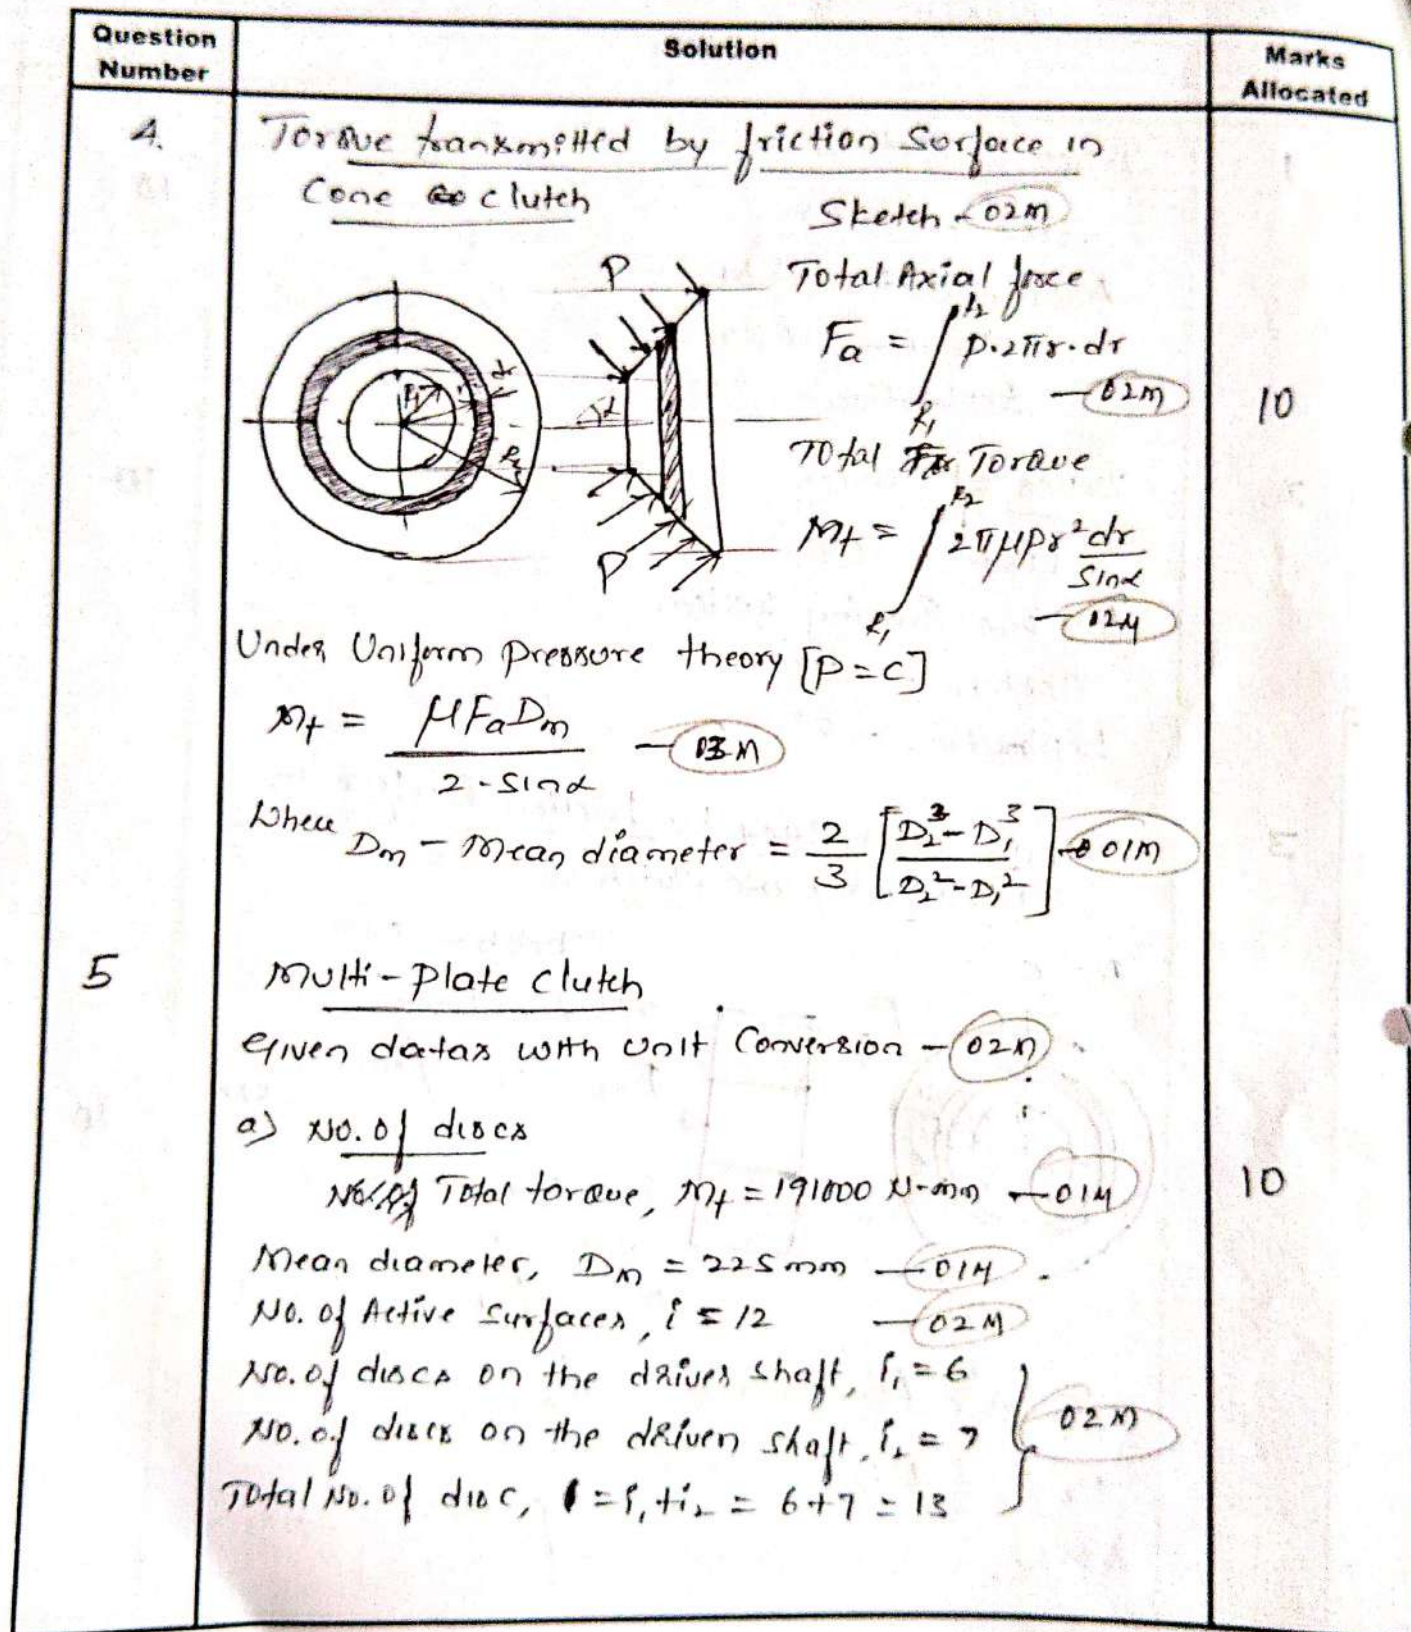 Question Number
Solution
Marks Allocated
4.
Torque transmitted by friction Surface in
Cone clutch
Sketch - 02M
P
Total Axial force
Fa = ∫ R1 R2 p·2πr·dr
- 02M
10
R1
dr
R2
α
Total Torque
Mt = ∫ R1 R2 2πμpr² dr / Sinα
- 02M
P
Under Uniform pressure theory [P=C]
Mt = μFaDm / 2·Sinα - 03M
Where Dm - Mean diameter = 2/3 [D2³-D1³ / D2²-D1²] - 01M
5
Multi-Plate Clutch
Given datas with Unit Conversion - 02M
a) No. of discs
Total torque, Mt = 191000 N-mm - 01M
10
Mean diameter, Dm = 225mm - 01M
No. of Active Surfaces, i = 12 - 02M
No. of discs on the driver shaft, i1 = 6
No. of discs on the driven shaft, i2 = 7
02M
Total No. of disc, i = i1+i2 = 6+7 = 13